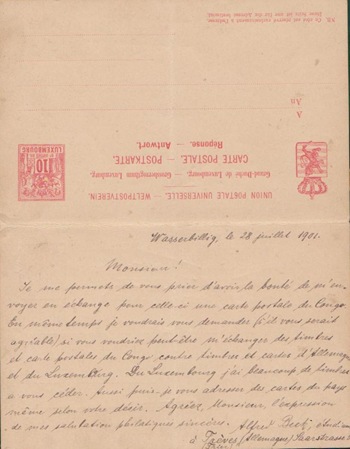 N.B. Ce côté est réservé exclusivement à l'adresse.
Diese Seite ist nur für die Adresse bestimmt.
A
An
Réponse. — Antwort.
CARTE POSTALE. — POSTKARTE.
Grand-Duché de Luxembourg. — Grossherzogthum Luxemburg.
UNION POSTALE UNIVERSELLE. — WELTPOSTVEREIN.
10
LUXEMBOURG
Wasserbillig, le 28 juillet 1901.
Monsieur!
Je me permets de vous prier d'avoir la bonté de m'en-
voyer en échange pour celle-ci une carte postale du Congo.
En même temps je voudrais vous demander (s'il vous serait
agréable) si vous voudriez peut-être m'échanger des timbres
et carte postales du Congo contre timbres et cartes d'Allemagne
et du Luxemburg. Du Luxembourg j'ai beaucoup de timbres
a vous céder. Aussi puis-je vous adresser des cartes du pays
même selon votre désir. Agréez, Monsieur, l'expression
de mes salutation philatiques sincères. Alfred Beck,
à Trèves (Allemagne) Saarstrasse